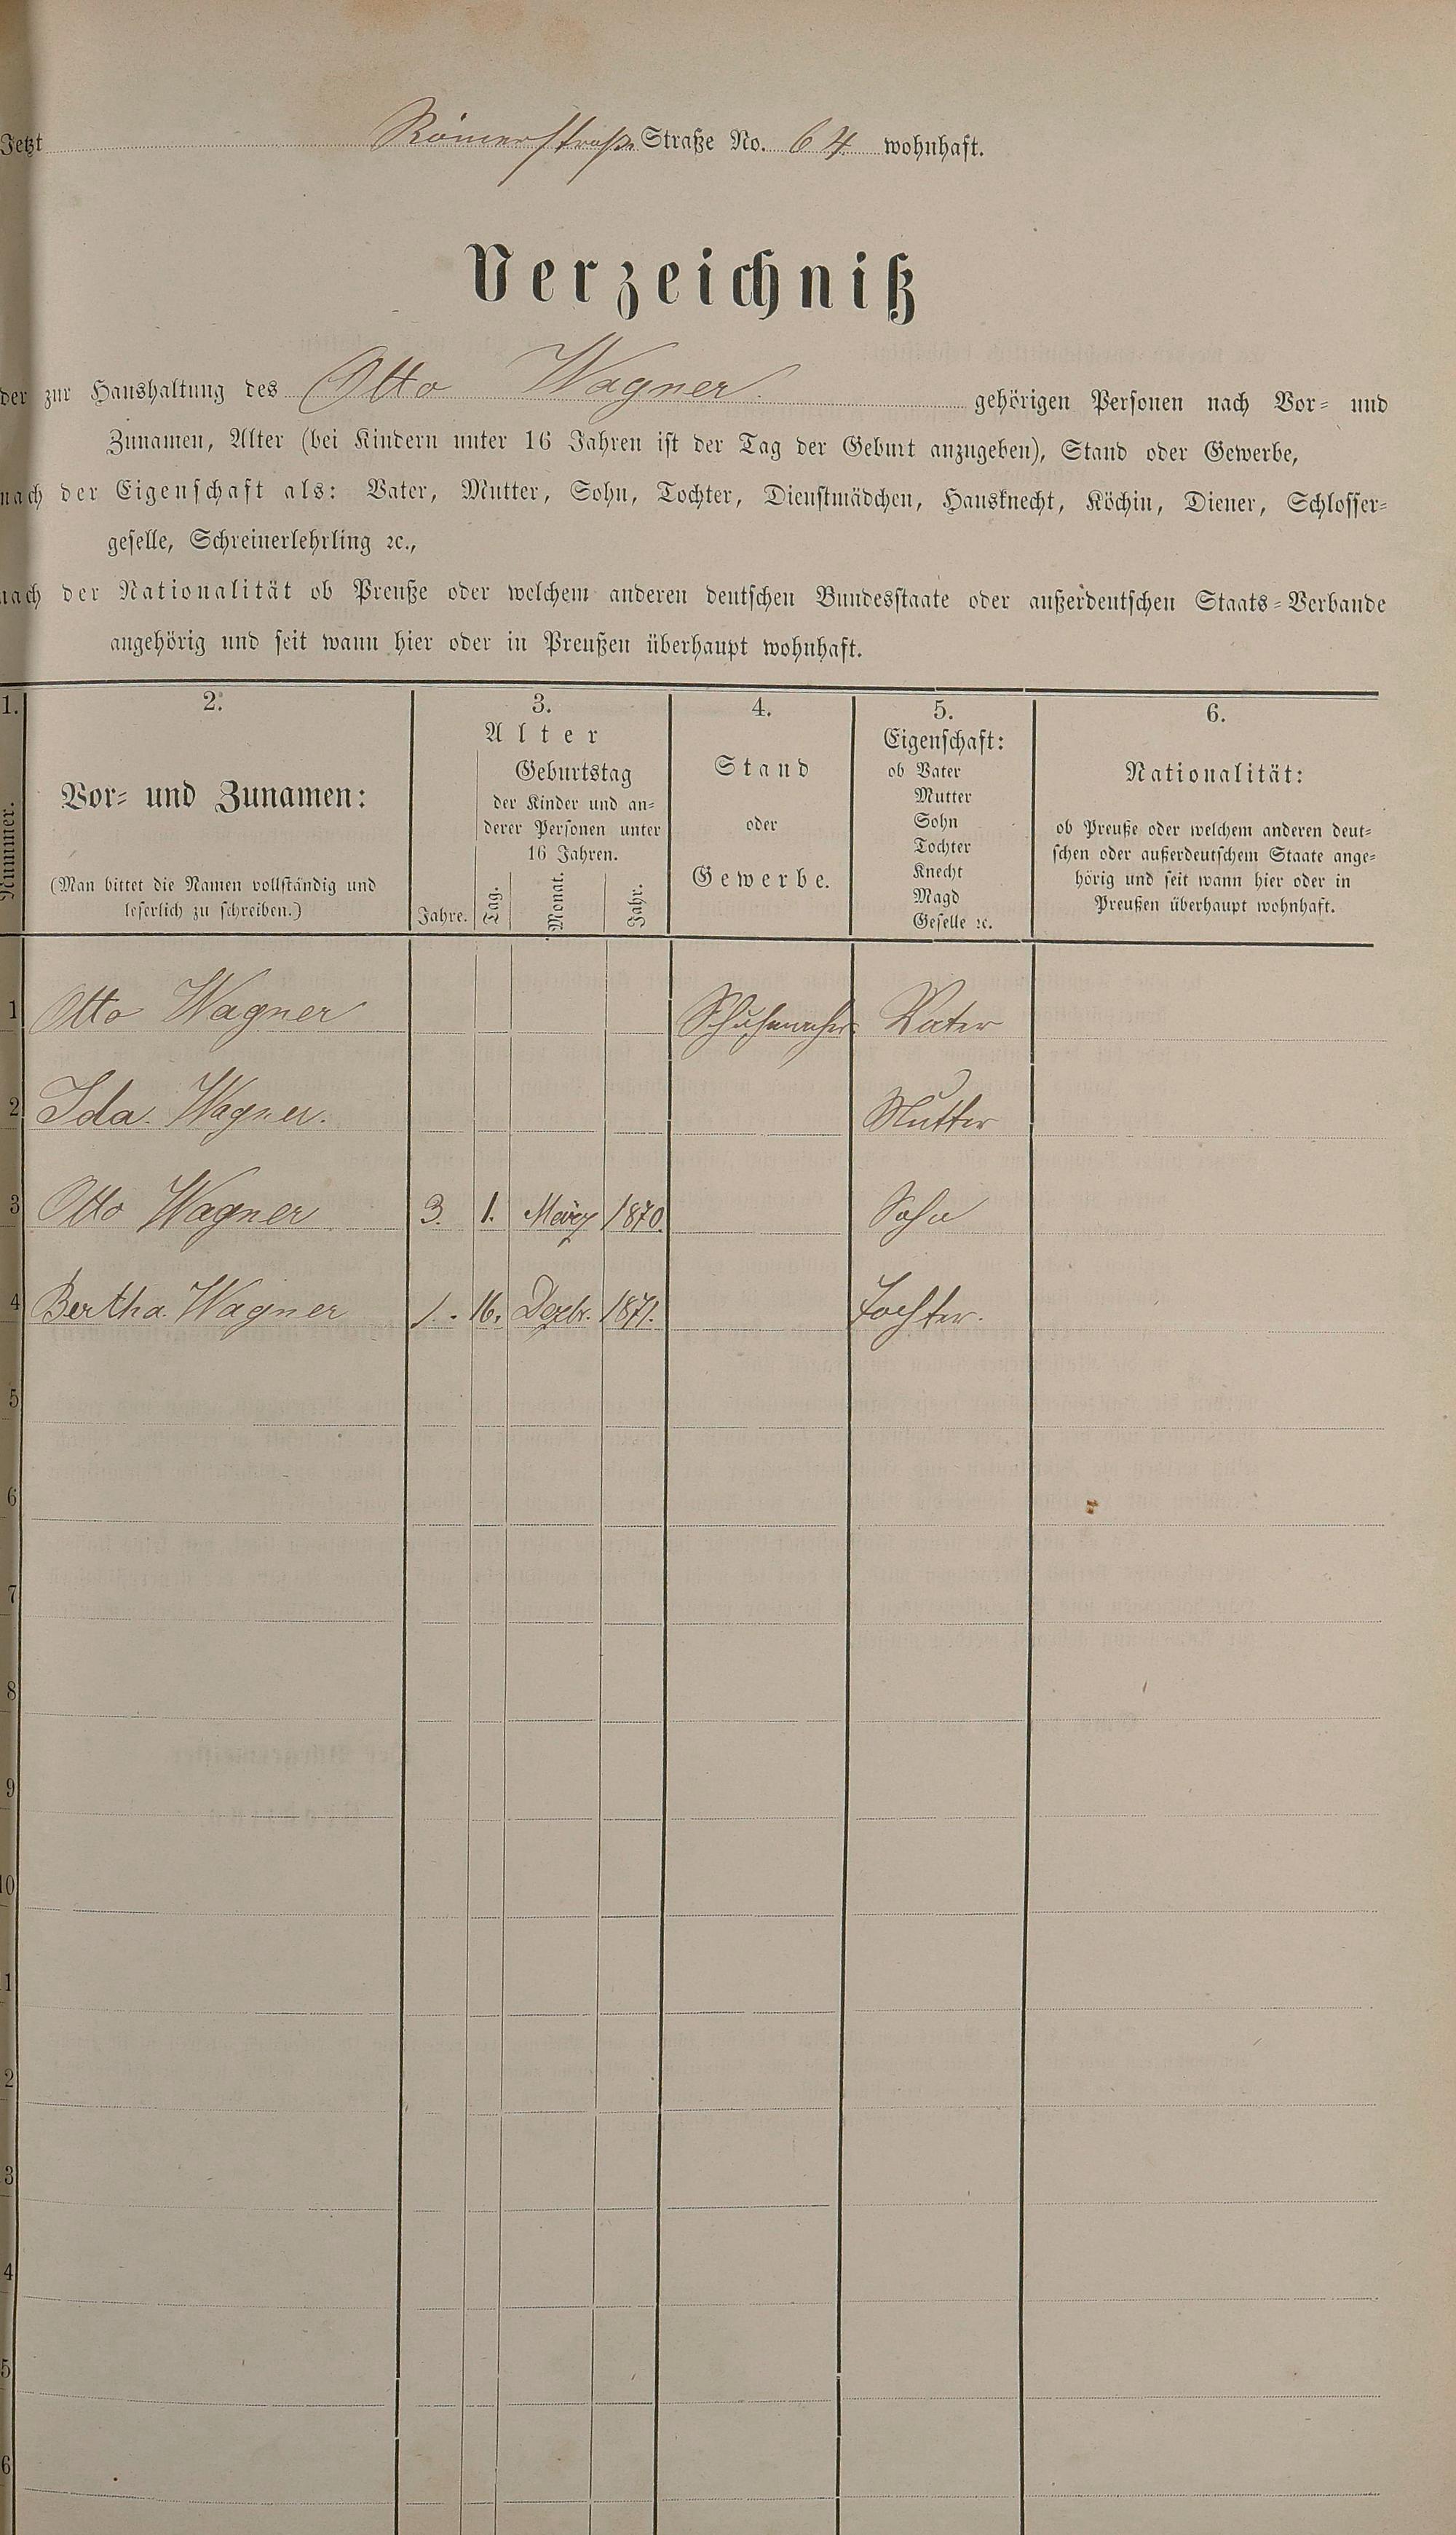 Jetzt Römerstraße Straße No. 64 wohnhaft.
Verzeichniß
der zur Haushaltung des Otto Wagner. gehörigen Personen nach Vor- und
Zunamen, Alter (bei Kindern unter 16 Jahren ist der Tag der Geburt anzugeben), Stand oder Gewerbe,
nach der Eigenschaft als: Vater, Mutter, Sohn, Tochter, Dienstmädchen, Hausknecht, Köchin, Diener, Schlosser-
geselle, Schreinerlehrling ꝛc.,
nach der Nationalität ob Preuße oder welchem anderen deutschen Bundesstaate oder außerdeutschen Staats-Verbande
angehörig und seit wann hier oder in Preußen überhaupt wohnhaft.
1. 2. 3. 4. 5. 6.
Nummer.
Vor- und Zunamen:
(Man bittet die Namen vollständig und
leserlich zu schreiben.)
Alter
Geburtstag
der Kinder und an-
derer Personen unter
16 Jahren.
Jahre. Tag. Monat. Jahr.
Stand
oder
Gewerbe.
Eigenschaft:
ob Vater
Mutter
Sohn
Tochter
Knecht
Magd
Geselle ꝛc.
Nationalität:
ob Preuße oder welchem anderen deut-
schen oder außerdeutschem Staate ange-
hörig und seit wann hier oder in
Preußen überhaupt wohnhaft.
1 Otto Wagner Schuhmacher Vater
2 Ida Wagner. Mutter
3 Otto Wagner 3. 1. März 1870. Sohn
4 Bertha Wagner 1. 16. Dezbr. 1871. Tochter.
5
6
7
8
9
10
1
2
3
4
5
6